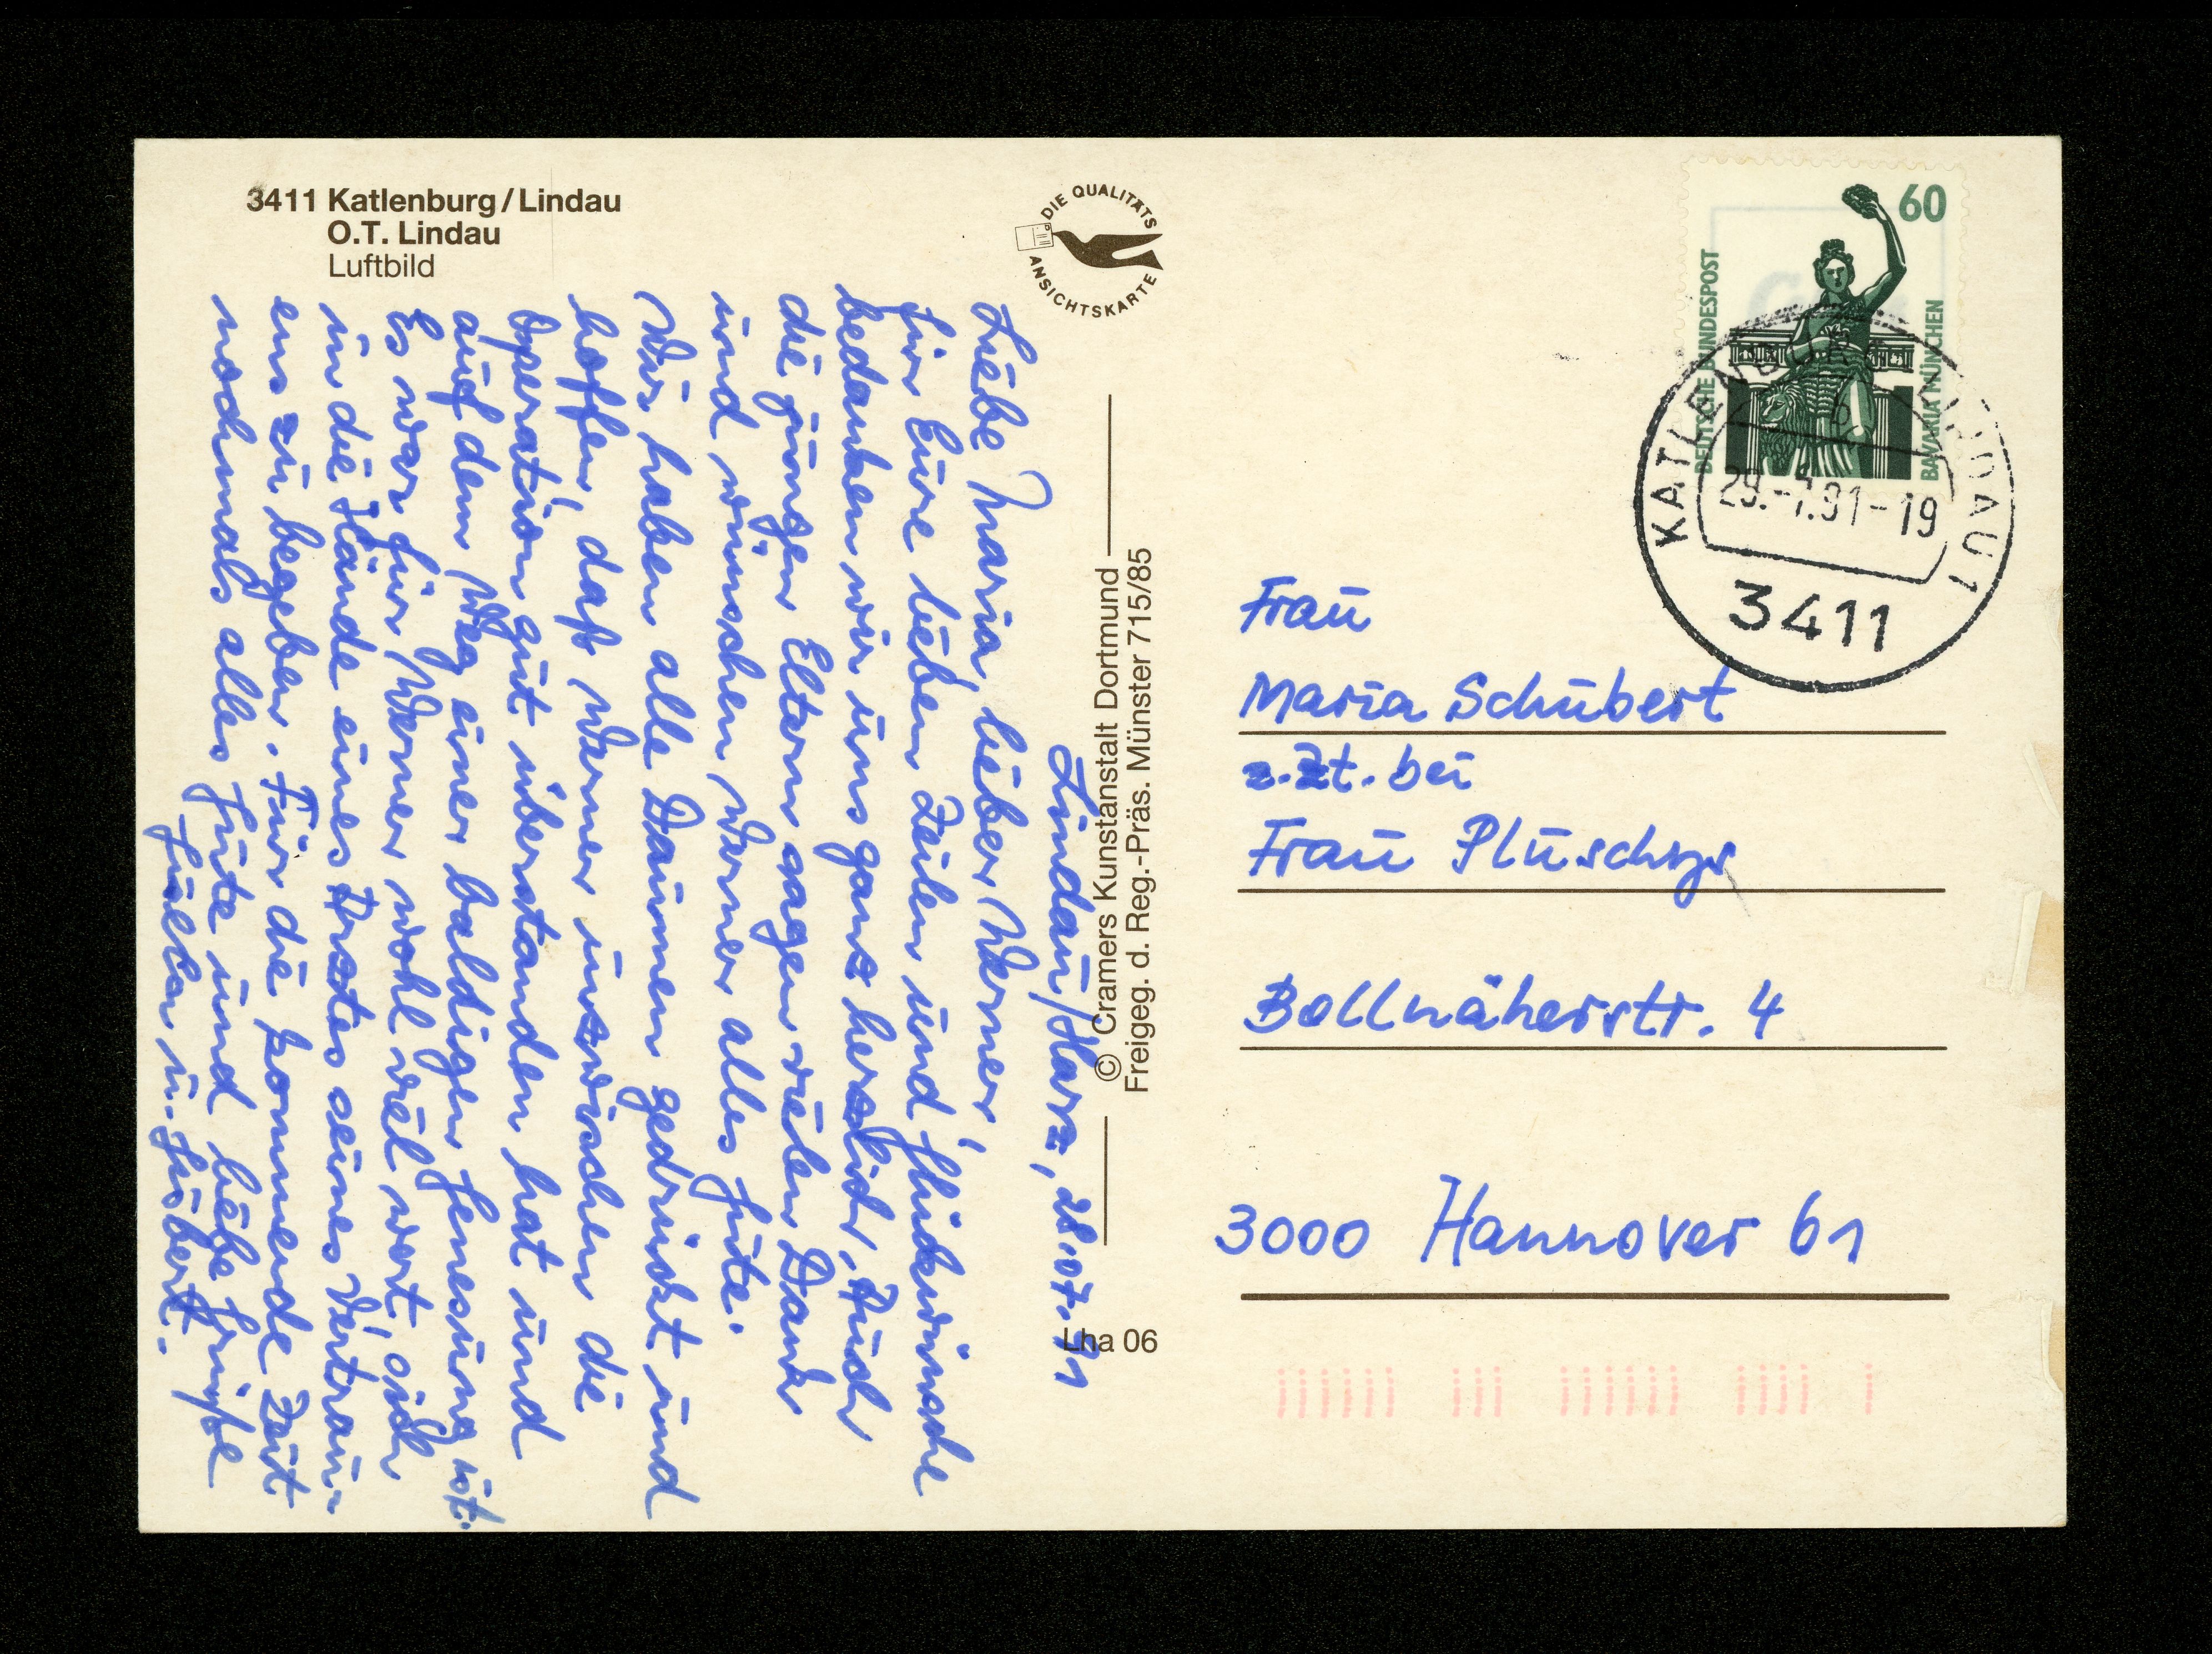 3411 Katlenburg/Lindau
O.T. Lindau
Luftbild
DIE QUALITÄTS
ANSICHTSKARTE
Lindau/Harz, 28.07.91
Liebe Maria, lieber Werner,
für Eure lieben Zeilen und Glückwünsche
bedanken wir uns ganz herzlich. Auch
die jungen Eltern sagen vielen Dank
und wünschen Werner alles Gute.
Wir haben alle Daumen gedrückt und
hoffen, daß Werner inzwischen die
Operation gut überstanden hat und
auf dem Weg einer baldigen Genesung ist.
Es war für Werner wohl viel wert, sich
in die Hände eines Arztes seines Vertrau-
ens zu begeben. Für die kommende Zeit
nochmals alles Gute und liebe Grüße
u. Hübert.
© Cramers Kunstanstalt Dortmund
Freigeg. d. Reg.-Präs. Münster 715/85
Lha 06
60
DEUTSCHE BUNDESPOST
BAVARIA MÜNCHEN
KATLENBURG-LINDAU 1
b
29.-7.91-19
3411
Frau
Maria Schubert
z.Zt. bei
Frau
Bollnäherstr. 4
3000 Hannover 61